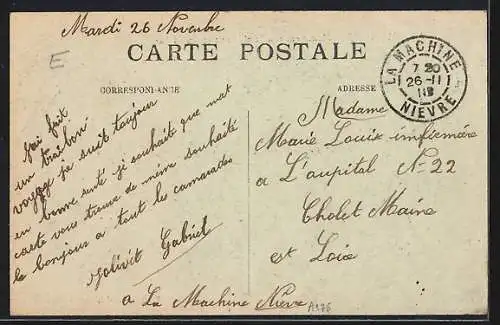 Mardi 26 Novenbre
E
CARTE POSTALE
CORRESPONDANCE
ADRESSE
LA MACHINE
7 20
26-11
18
NIEVRE
Jai fait
un traibon
voyage je suit toujour
en bonne senté ji souhaite que mat
carte vous trouve de même souhaité
le bonjour a tout les camarades
Jolivét Gabriel
a La Machine Nièvre
Madame
Marie Louis infirmière
a L'aupital N- 22
Cholet Maine
et Loire
A176